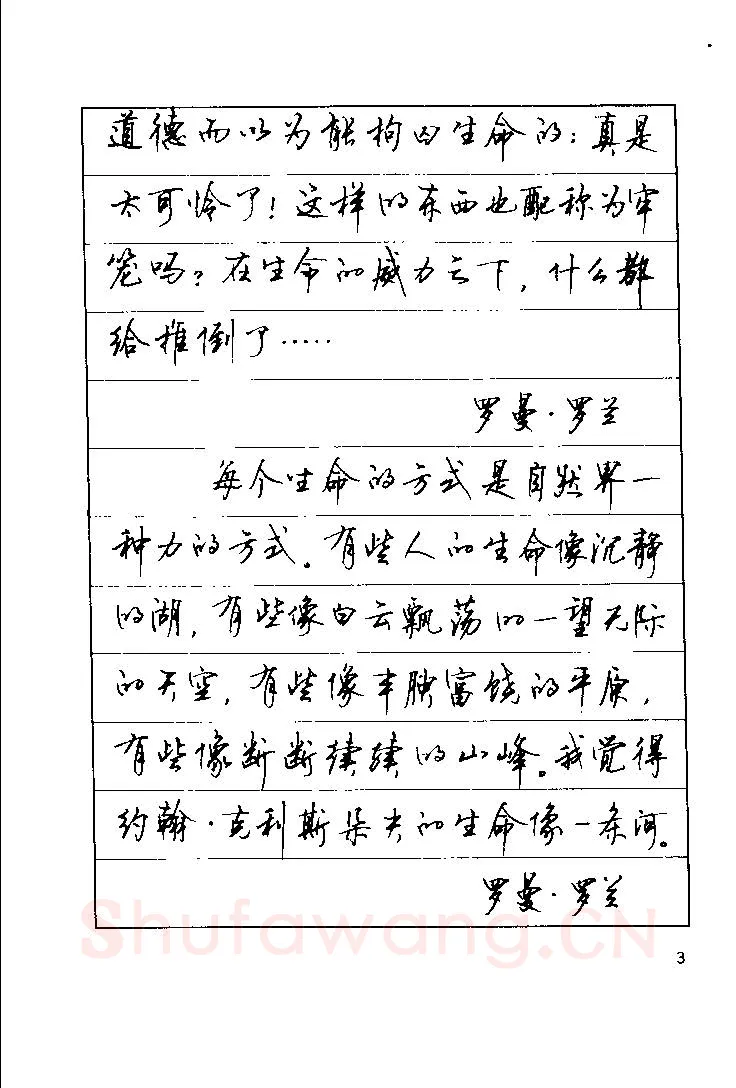 道德而以为能拘囚生命的：真是
太可怜了！这样的东西也配称为牢
笼吗？在生命的威力之下，什么都
给推倒了……
罗曼·罗兰
每个生命的方式是自然界一
种力的方式。有些人的生命像沉静
的湖，有些像白云飘荡的一望无际
的天空，有些像丰腴富饶的平原，
有些像断断续续的山峰。我觉得
约翰·克利斯朵夫的生命像一条河。
罗曼·罗兰
Shufawang.CN
3